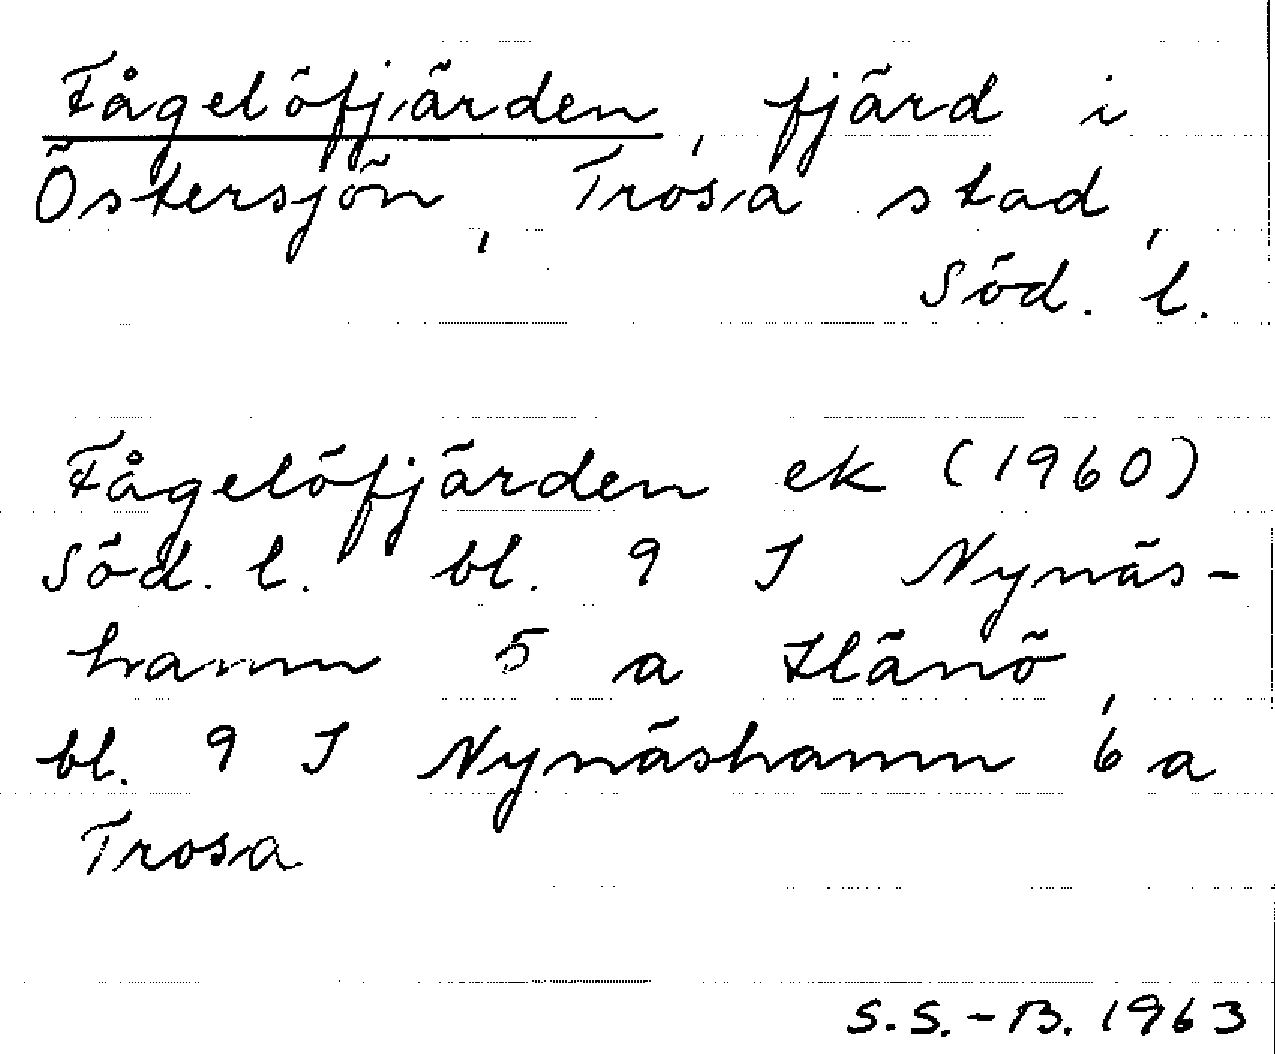 Fågelöfjärden, fjärd i
Östersjön, Trosa stad,
Söd. l.
Fågelöfjärden ek (1960)
Söd. l. bl. 9 I Nynäs-
hamn 5 a Hånö,
bl. 9 I Nynäshamn 6 a
Trosa
S.S.-B. 1963